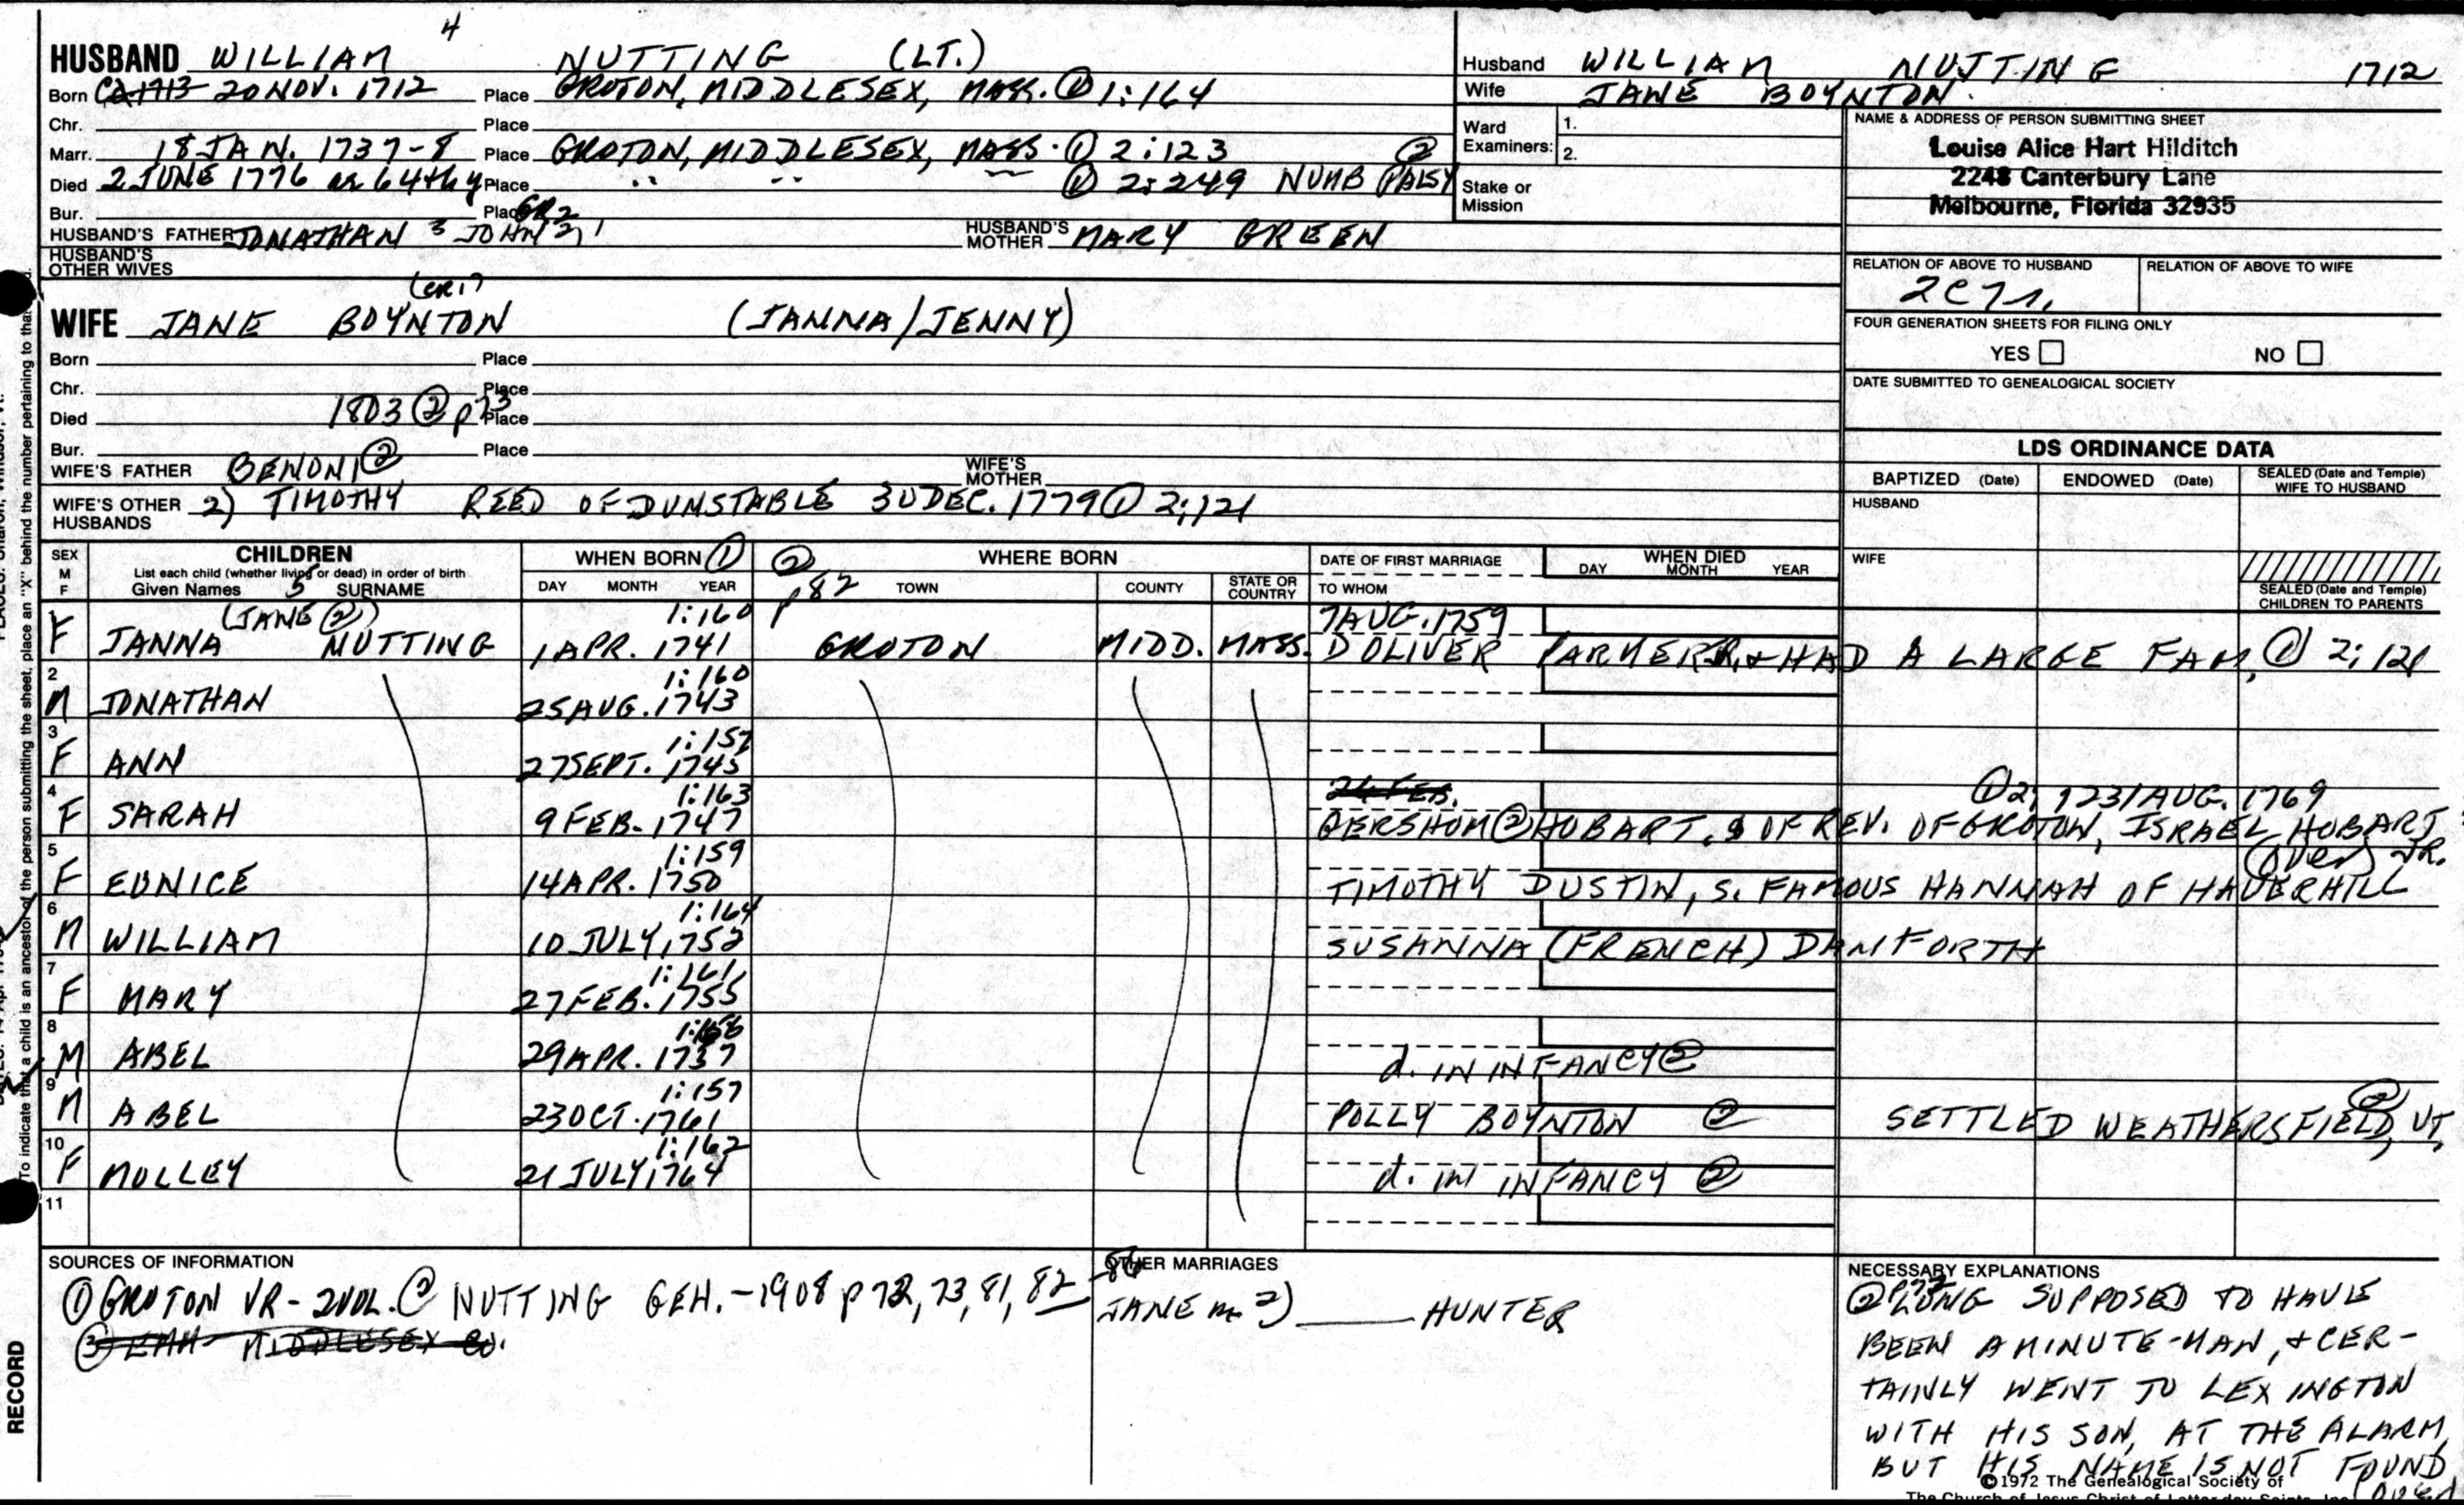 4
HUSBAND WILLIAM NUTTING (LT.)
Born CA 1713 20 NOV. 1712 Place GROTON, MIDDLESEX, MASS. ① 1:164
Chr. Place
Marr. 18 JAN. 1737-8 Place GROTON, MIDDLESEX, MASS. ① 2:123 ②
Died 2 JUNE 1776 as 64th y Place " " ① 2:249 NUMB PALSY
Bur. Place GR2
HUSBAND'S FATHER JONATHAN 3 JOHN 2, 1 HUSBAND'S MOTHER MARY GREEN
HUSBAND'S OTHER WIVES
WIFE JANE BOYNTON (JANNA/JENNY)
Born Place
Chr. Place
Died 1803 ② p73 Place
Bur. Place
WIFE'S FATHER BENONI ② WIFE'S MOTHER
WIFE'S OTHER HUSBANDS 2) TIMOTHY REED OF DUNSTABLE 30 DEC. 1779 ① 2:121
Husband WILLIAM NUTTING 1712
Wife JANE BOYNTON.
Ward Examiners: 1.
2.
Stake or Mission
NAME & ADDRESS OF PERSON SUBMITTING SHEET
Louise Alice Hart Hilditch
2248 Canterbury Lane
Melbourne, Florida 32935
RELATION OF ABOVE TO HUSBAND RELATION OF ABOVE TO WIFE
FOUR GENERATION SHEETS FOR FILING ONLY
YES NO
DATE SUBMITTED TO GENEALOGICAL SOCIETY
LDS ORDINANCE DATA
BAPTIZED (Date) ENDOWED (Date) SEALED (Date and Temple) WIFE TO HUSBAND
HUSBAND
WIFE
SEALED (Date and Temple) CHILDREN TO PARENTS
SEX M F CHILDREN WHEN BORN ① ② WHERE BORN DATE OF FIRST MARRIAGE WHEN DIED
List each child (whether living or dead) in order of birth
Given Names 5 SURNAME DAY MONTH YEAR p82 TOWN COUNTY STATE OR COUNTRY TO WHOM DAY MONTH YEAR
(JANE ②) 1:160 7 AUG. 1759
1 F JANNA NUTTING 1 APR. 1741 GROTON MIDD. MASS. D OLIVER PARKER JR. & HAD A LARGE FAM. ① 2:121
1:160
2 M JONATHAN 25 AUG. 1743
1:157
3 F ANN 27 SEPT. 1745
1:163 24 FEB. ① 2:123 1 AUG. 1769
4 F SARAH 9 FEB. 1747 GERSHOM ② HOBART, S OF REV. OF GROTON, ISRAEL HOBART
1:159 (OVER) JR.
5 F EUNICE 14 APR. 1750 TIMOTHY DUSTIN, S. FAMOUS HANNAH OF HAVERHILL
1:164
6 M WILLIAM 10 JULY, 1752 SUSANNA (FRENCH) DANFORTH
1:161
7 F MARY 27 FEB. 1755
8 M ABEL 29 APR. 1737 d. IN INFANCY ②
1:157
9 M ABEL 23 OCT. 1761 POLLY BOYNTON ② SETTLED WEATHERSFIELD, VT. ②
1:162
10 F MOLLEY 21 JULY, 1764 d. IN INFANCY ②
11
SOURCES OF INFORMATION
① GROTON VR - 2 VOL. ② NUTTING GEN. - 1908 p 72, 73, 81, 82 - 86
③ MIDDLESEX CO.
OTHER MARRIAGES
JANE m 2) ____ HUNTER
NECESSARY EXPLANATIONS
② LONG SUPPOSED TO HAVE
BEEN A MINUTE-MAN, & CER-
TAINLY WENT TO LEXINGTON
WITH HIS SON, AT THE ALARM,
BUT HIS NAME IS NOT FOUND
(over)
©1972 The Genealogical Society of
The Church of Jesus Christ of Latter-day Saints, Inc.
To indicate that a child is an ancestor of the person submitting the sheet, place an "X" behind the number pertaining to that
RECORD